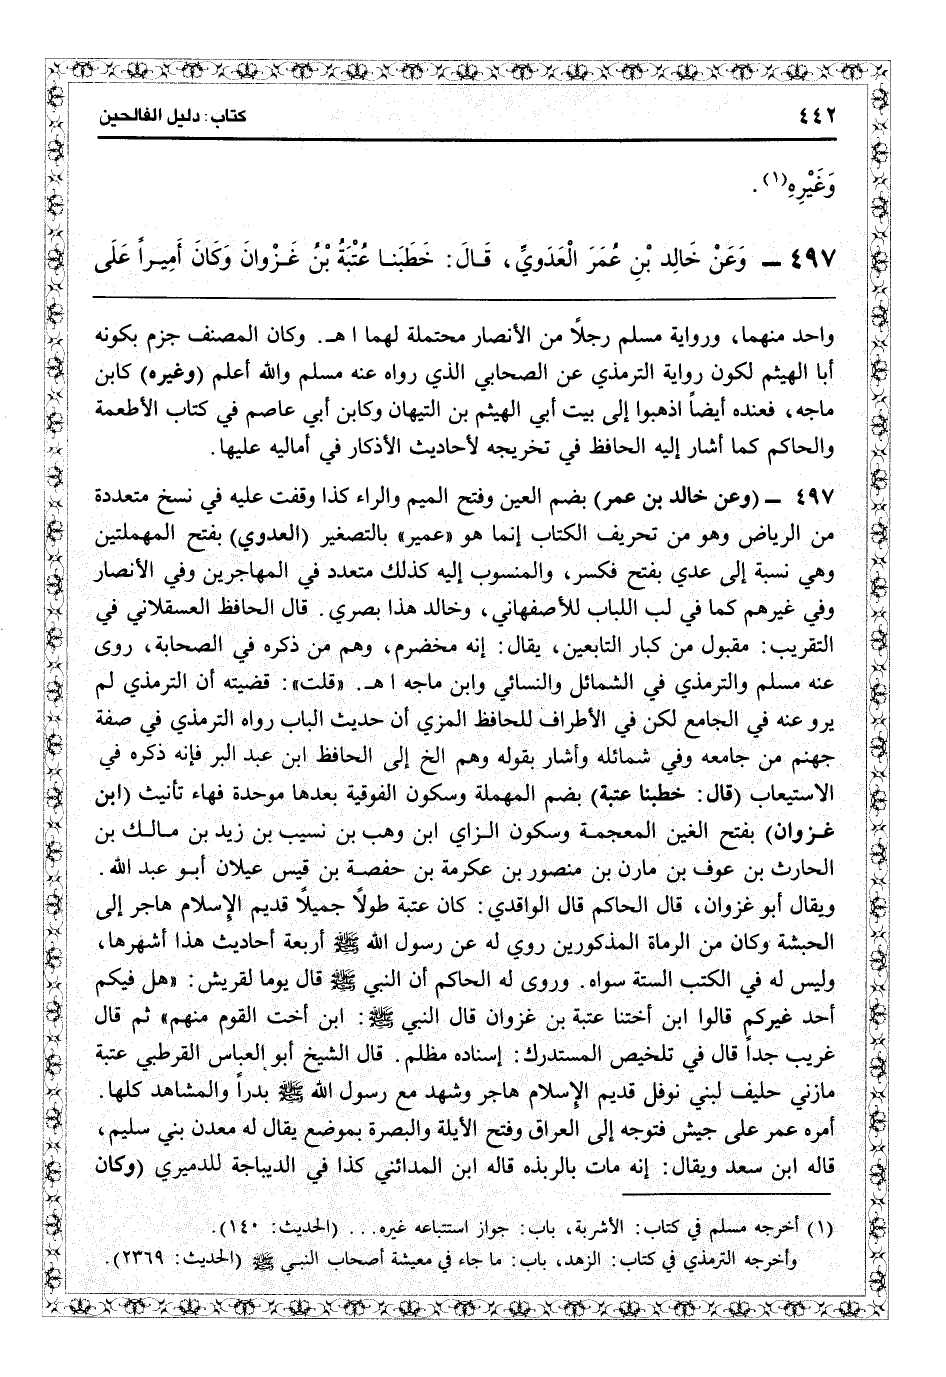 ٤٤٢ كتاب: دليل الفالحين
وَغَيْرِهِ(١).
٤٩٧ ـ وَعَنْ خَالِدِ بْنِ عُمَرَ الْعَدَوِيِّ، قَـالَ: خَطَبَنـا عُتْبَةُ بْنُ غَـزْوانَ وَكَانَ أَمِيـراً عَلَى
واحد منهما، ورواية مسلم رجلاً من الأنصار محتملة لهما ا هـ. وكان المصنف جزم بكونه
أبا الهيثم لكون رواية الترمذي عن الصحابي الذي رواه عنه مسلم والله أعلم (وغيره) كابن
ماجه، فعنده أيضاً اذهبوا إلى بيت أبي الهيثم بن التيهان وكابن أبي عاصم في كتاب الأطعمة
والحاكم كما أشار إليه الحافظ في تخريجه لأحاديث الأذكار في أماليه عليها.
٤٩٧ ـ (وعن خالد بن عمر) بضم العين وفتح الميم والراء كذا وقفت عليه في نسخ متعددة
من الرياض وهو من تحريف الكتاب إنما هو «عمير» بالتصغير (العدوي) بفتح المهملتين
وهي نسبة إلى عدي بفتح فكسر، والمنسوب إليه كذلك متعدد في المهاجرين وفي الأنصار
وفي غيرهم كما في لب اللباب للأصفهاني، وخالد هذا بصري. قال الحافظ العسقلاني في
التقريب: مقبول من كبار التابعين، يقال: إنه مخضرم، وهم من ذكره في الصحابة، روى
عنه مسلم والترمذي في الشمائل والنسائي وابن ماجه ا هـ. «قلت»: قضيته أن الترمذي لم
يرو عنه في الجامع لكن في الأطراف للحافظ المزي أن حديث الباب رواه الترمذي في صفة
جهنم من جامعه وفي شمائله وأشار بقوله وهم الخ إلى الحافظ ابن عبد البر فإنه ذكره في
الاستيعاب (قال: خطبنا عتبة) بضم المهملة وسكون الفوقية بعدها موحدة فهاء تأنيث (ابن
غـزوان) بفتح الغين المعجمة وسكون الـزاي ابن وهب بن نسيب بن زيد بن مـالـك بن
الحارث بن عوف بن مارن بن منصور بن عكرمة بن حفصـة بن قيس عيلان أبـو عبد الله.
ويقال أبو غزوان، قال الحاكم قال الواقدي: كان عتبة طولاً جميلاً قديم الإسلام هاجر إلى
الحبشة وكان من الرماة المذكورين روي له عن رسول الله ﷺ أربعة أحاديث هذا أشهرها،
وليس له في الكتب الستة سواه. وروى له الحاكم أن النبي ﷺ قال يوما لقريش: «هل فيكم
أحد غيركم قالوا ابن أختنا عتبة بن غزوان قال النبي ﷺ: ابن أخت القوم منهم» ثم قال
غريب جداً قال في تلخيص المستدرك: إسناده مظلم. قال الشيخ أبو العباس القرطبي عتبة
مازني حليف لبني نوفل قديم الإسلام هاجر وشهد مع رسول الله ﷺ بدراً والمشاهد كلها.
أمره عمر على جيش فتوجه إلى العراق وفتح الأيلة والبصرة بموضع يقال له معدن بني سليم،
قاله ابن سعد ويقال: إنه مات بالربذه قاله ابن المدائني كذا في الديباجة للدميري (وكان
(١) أخرجه مسلم في كتاب: الأشربة، باب: جواز استتباعه غيره... (الحديث: ١٤٠).
وأخرجه الترمذي في كتاب: الزهد، باب: ما جاء في معيشة أصحاب النبـي ﷺ (الحديث: ٢٣٦٩).